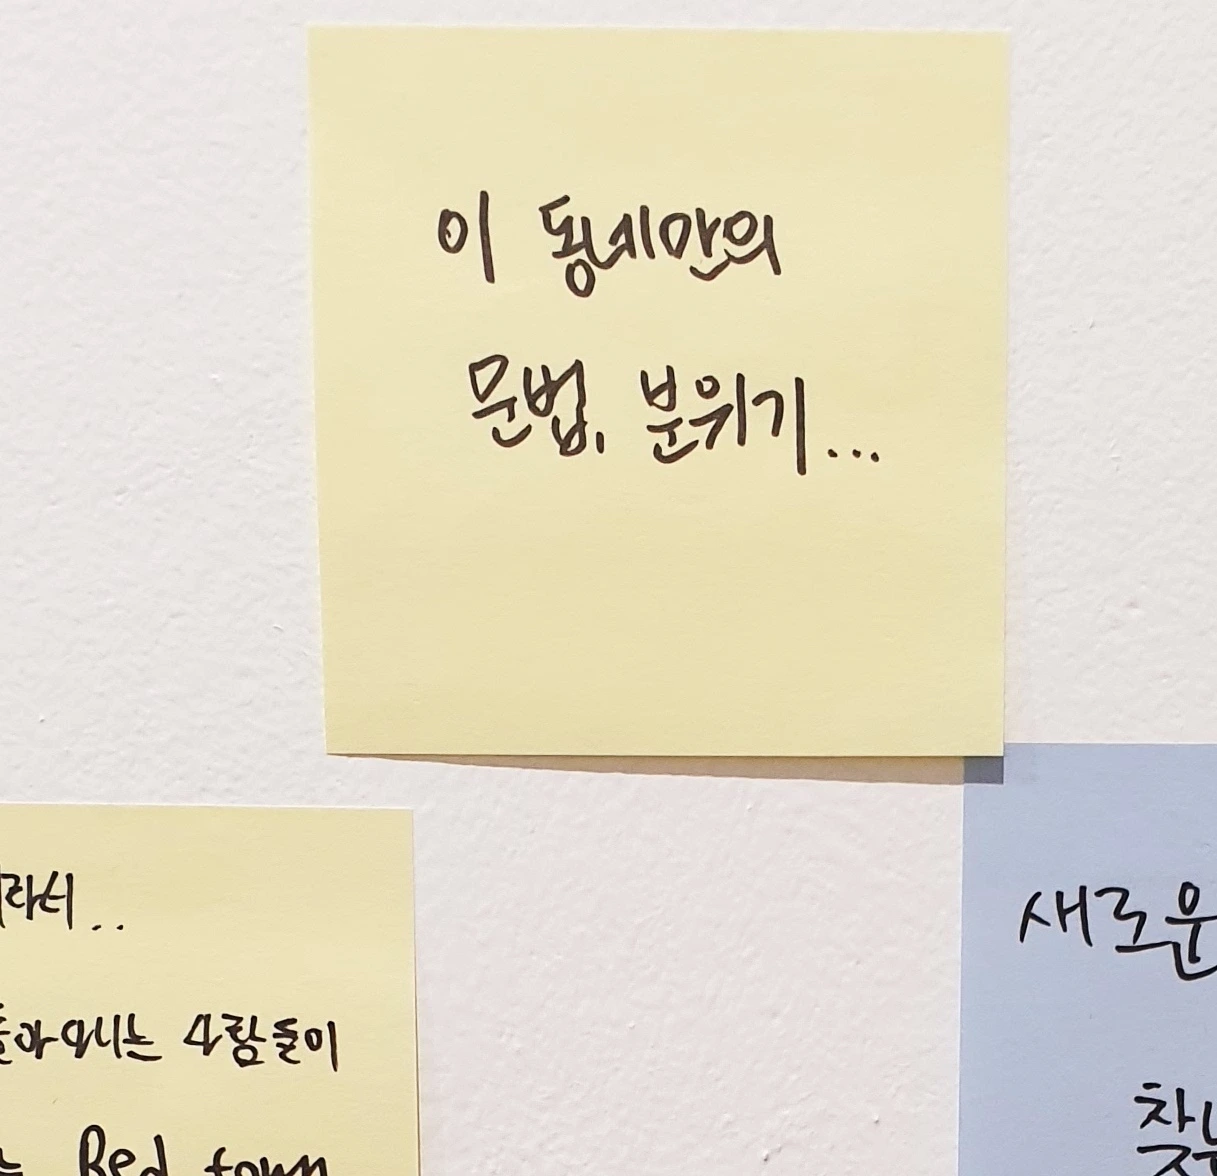 이 동네만의
문법, 분위기...
라서..
돌아오니는 사람들이
Red town
새로운